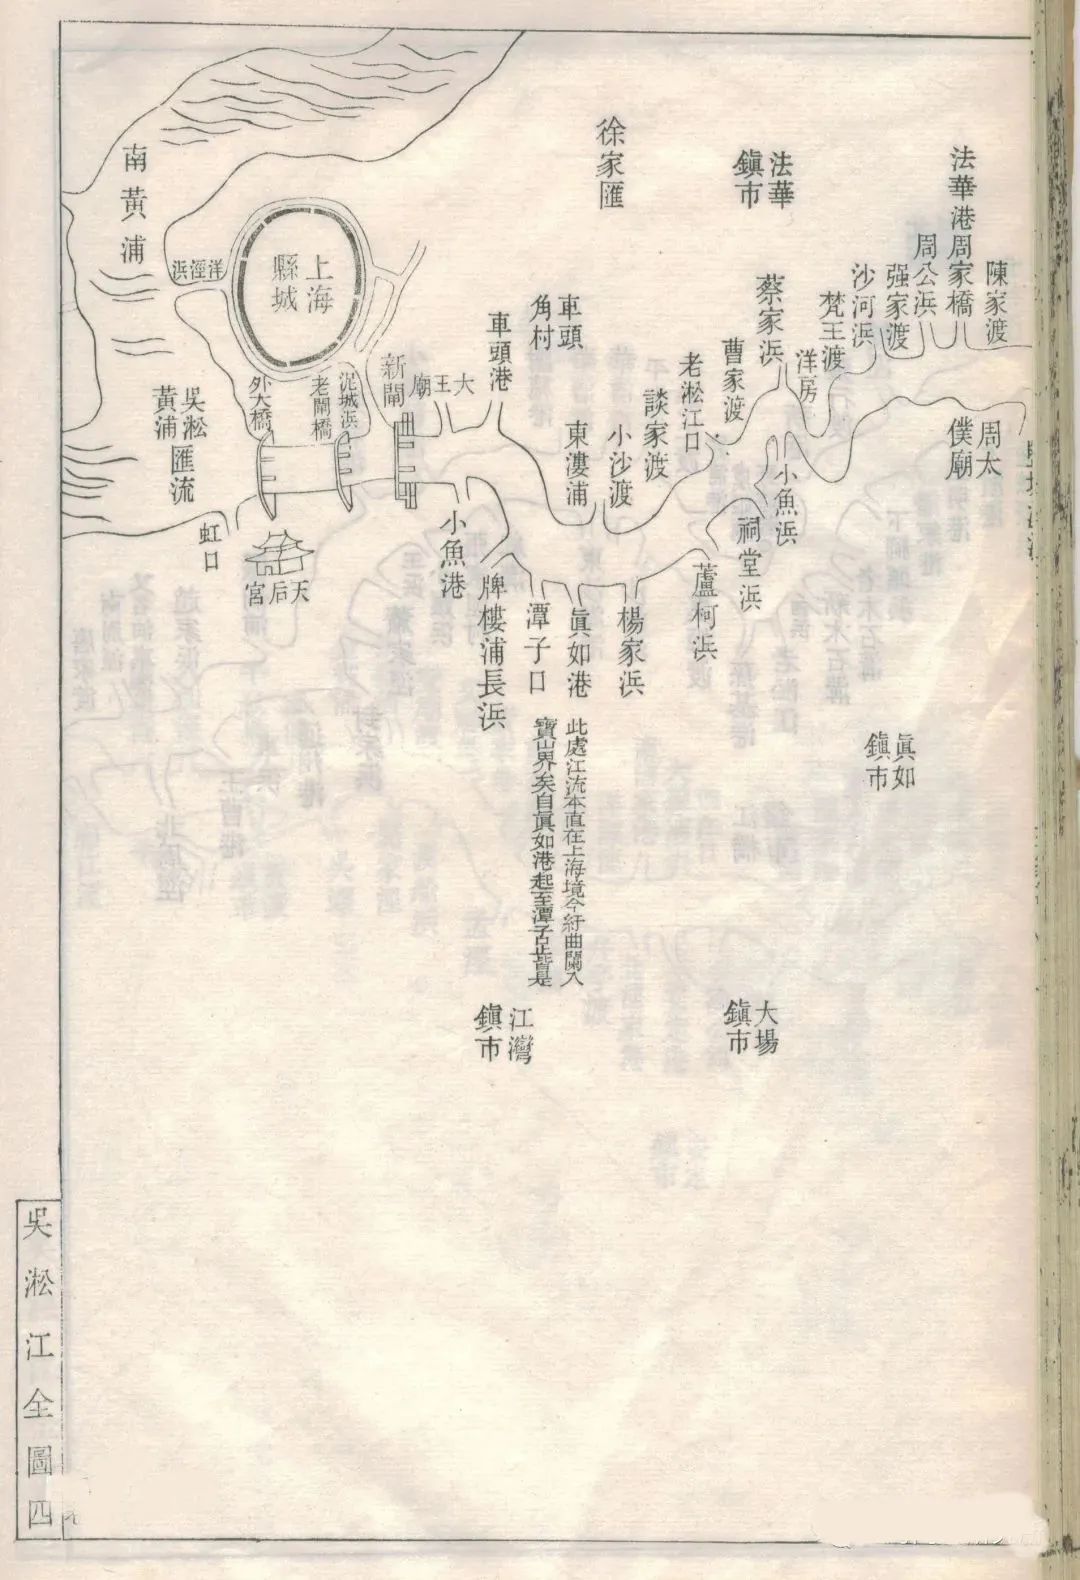 陳家渡
法華港周家橋
周公浜
强家渡
沙河浜
梵王渡
洋房
蔡家浜
法華
鎮市
曹家渡
老淞江口
談家渡
小沙渡
東漊浦
徐家匯
車頭
角村
車頭港
大王廟
新閘
泥城浜
老閘橋
外大橋
上海
縣城
洋涇浜
南黃浦
吳淞
黃浦匯流
周太
僕廟
小魚浜
祠堂浜
蘆柯浜
楊家浜
眞如港
潭子口
牌樓浦長浜
小魚港
天后宮
虹口
眞如
鎮市
此處江流本直在上海境今紆曲闌入
寶山界矣自眞如港起至潭子口止皆是
大場
鎮市
江灣
鎮市
吳淞江全圖四